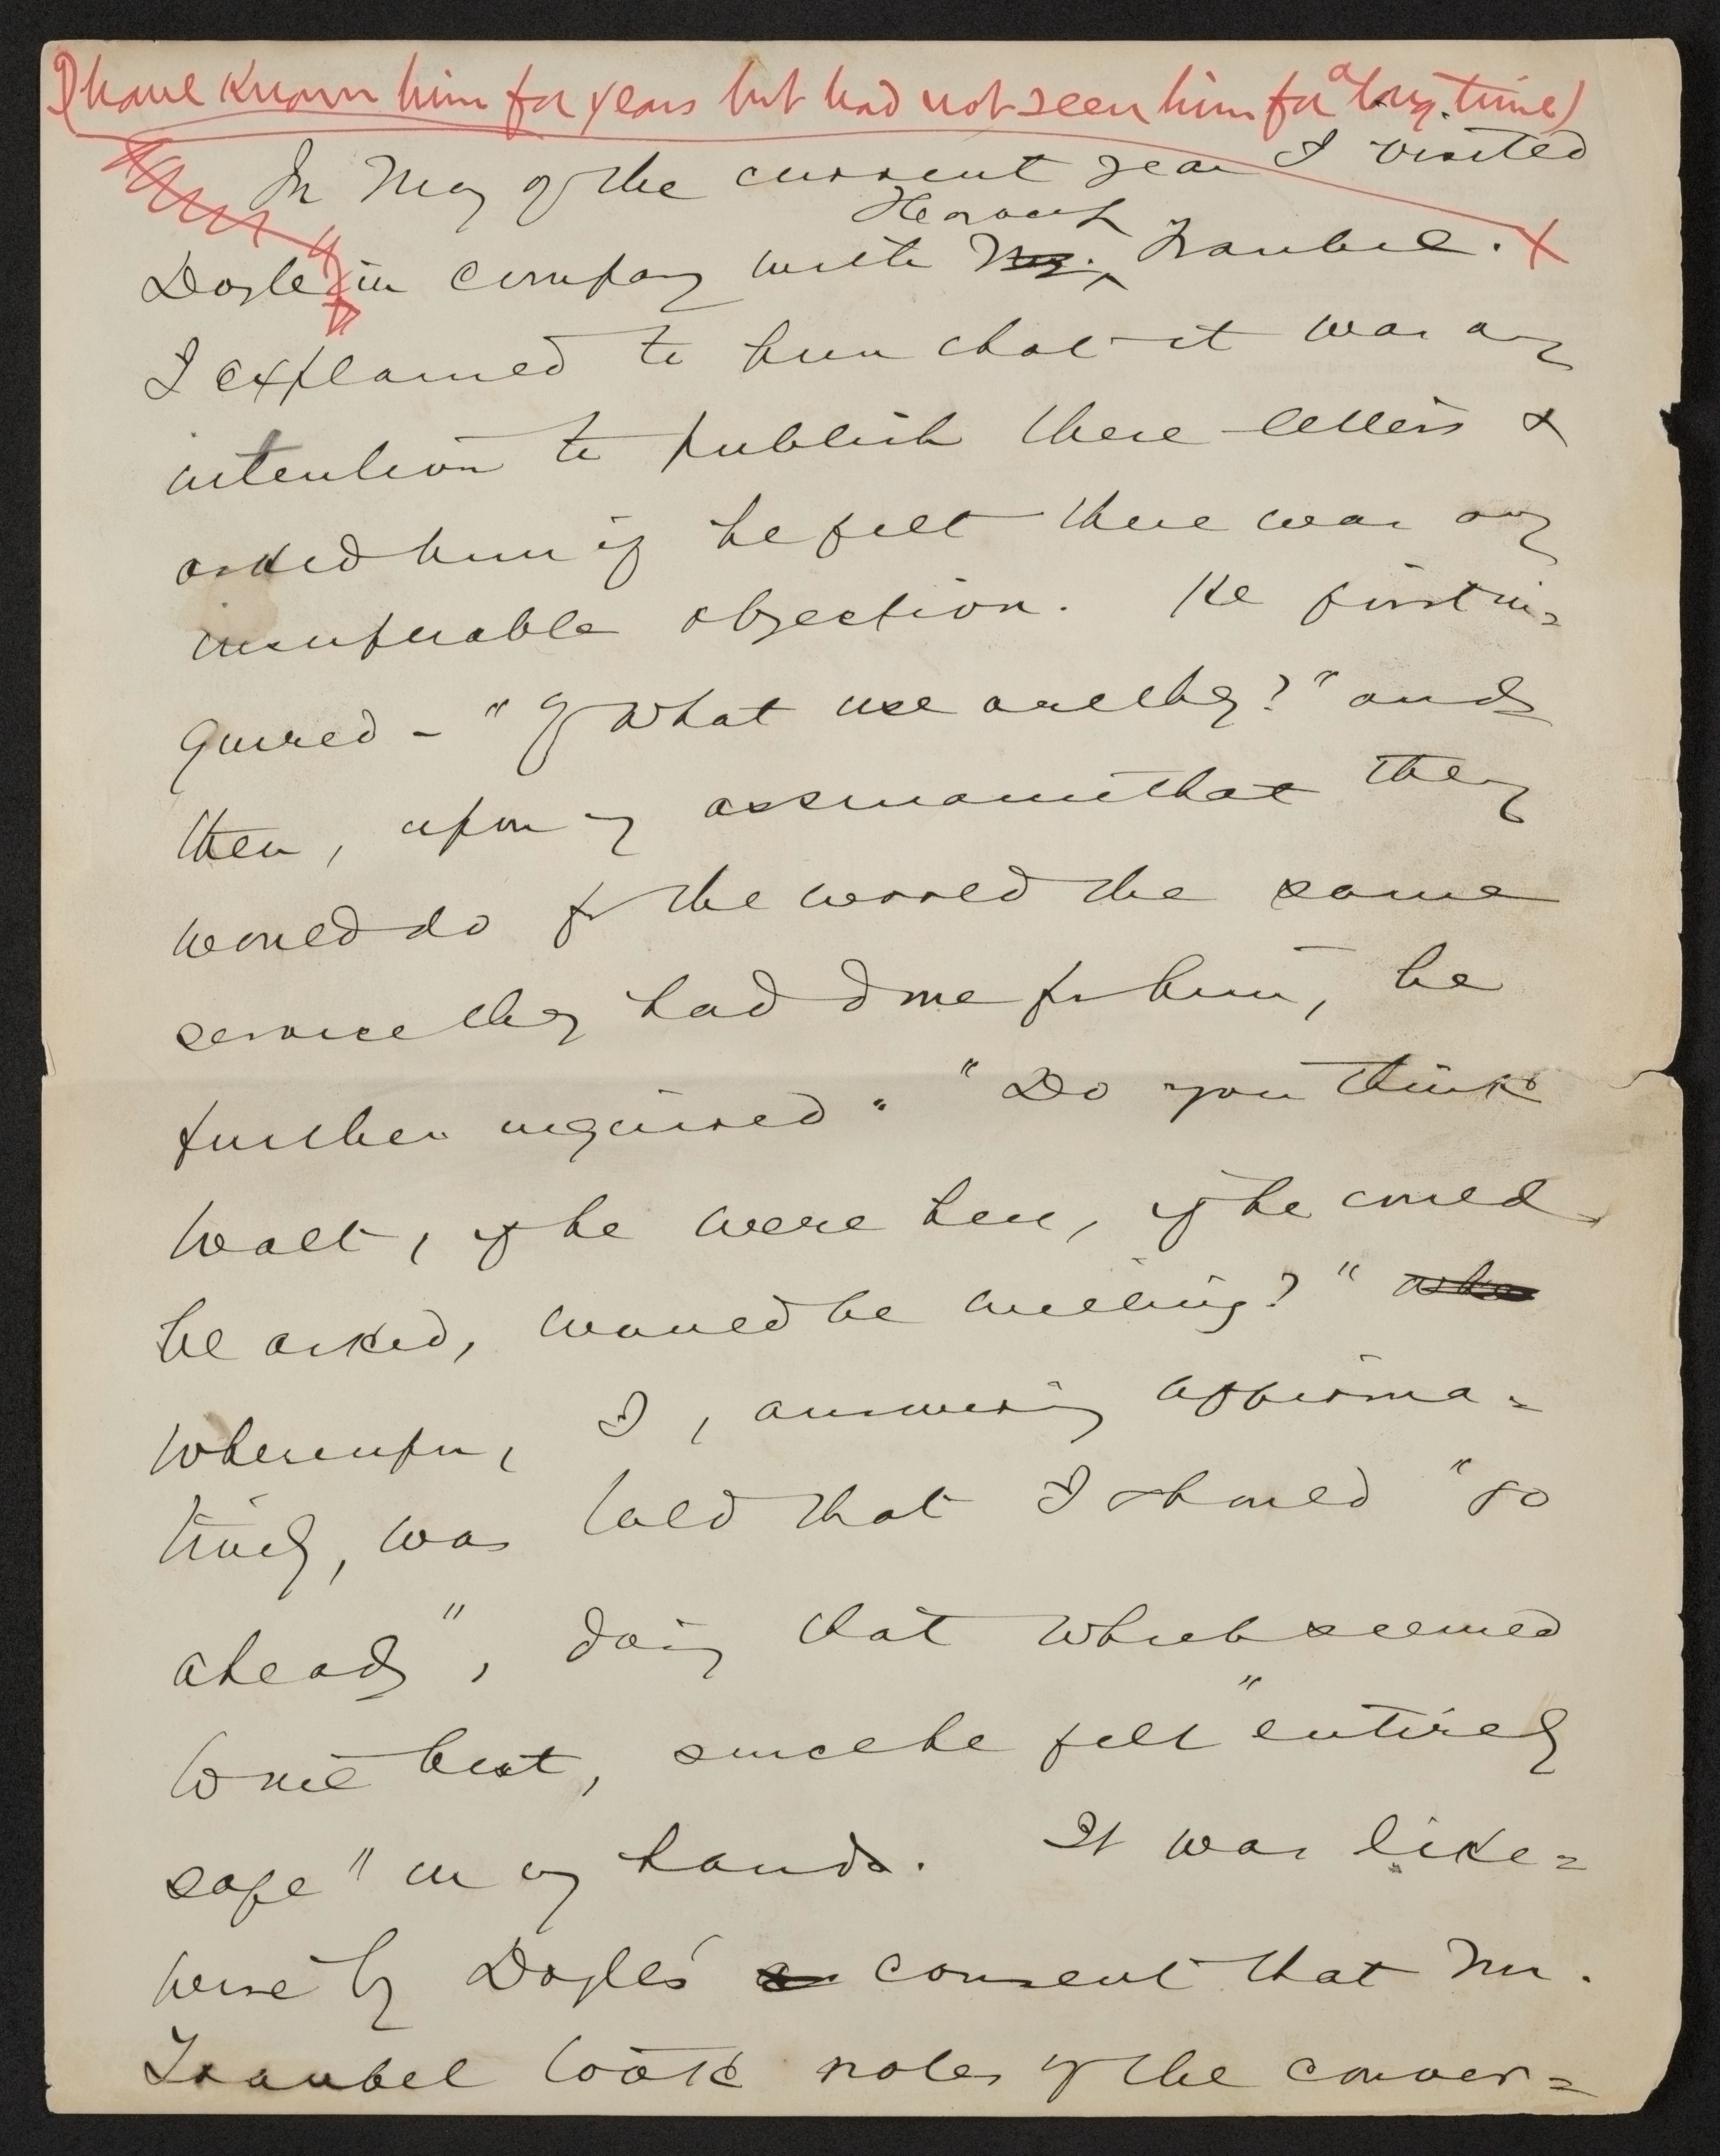 (I have known him for years but had not seen him for a long time)
In May of the current year I visited
Horace
Doyle in company with Mr. Traubel.
I explained to him that it was my
intention to publish these letters &
asked him if he felt there was any
insuperable objection. He first in=
quired - "Of what use are they?" and
then, upon my assurance that they
would do for the world the same
service they had done for him, he
further inquired: "Do you think
Walt, if he were here, if he could
be asked, would be willing?" aske
whereupon, I, answering affirma=
tively, was told that I should "go
ahead", doing that which seemed
to me best, since he felt "entirely
safe" in my hands. It was like=
wise by Doyle's consent that Mr.
Traubel took notes of the conver=